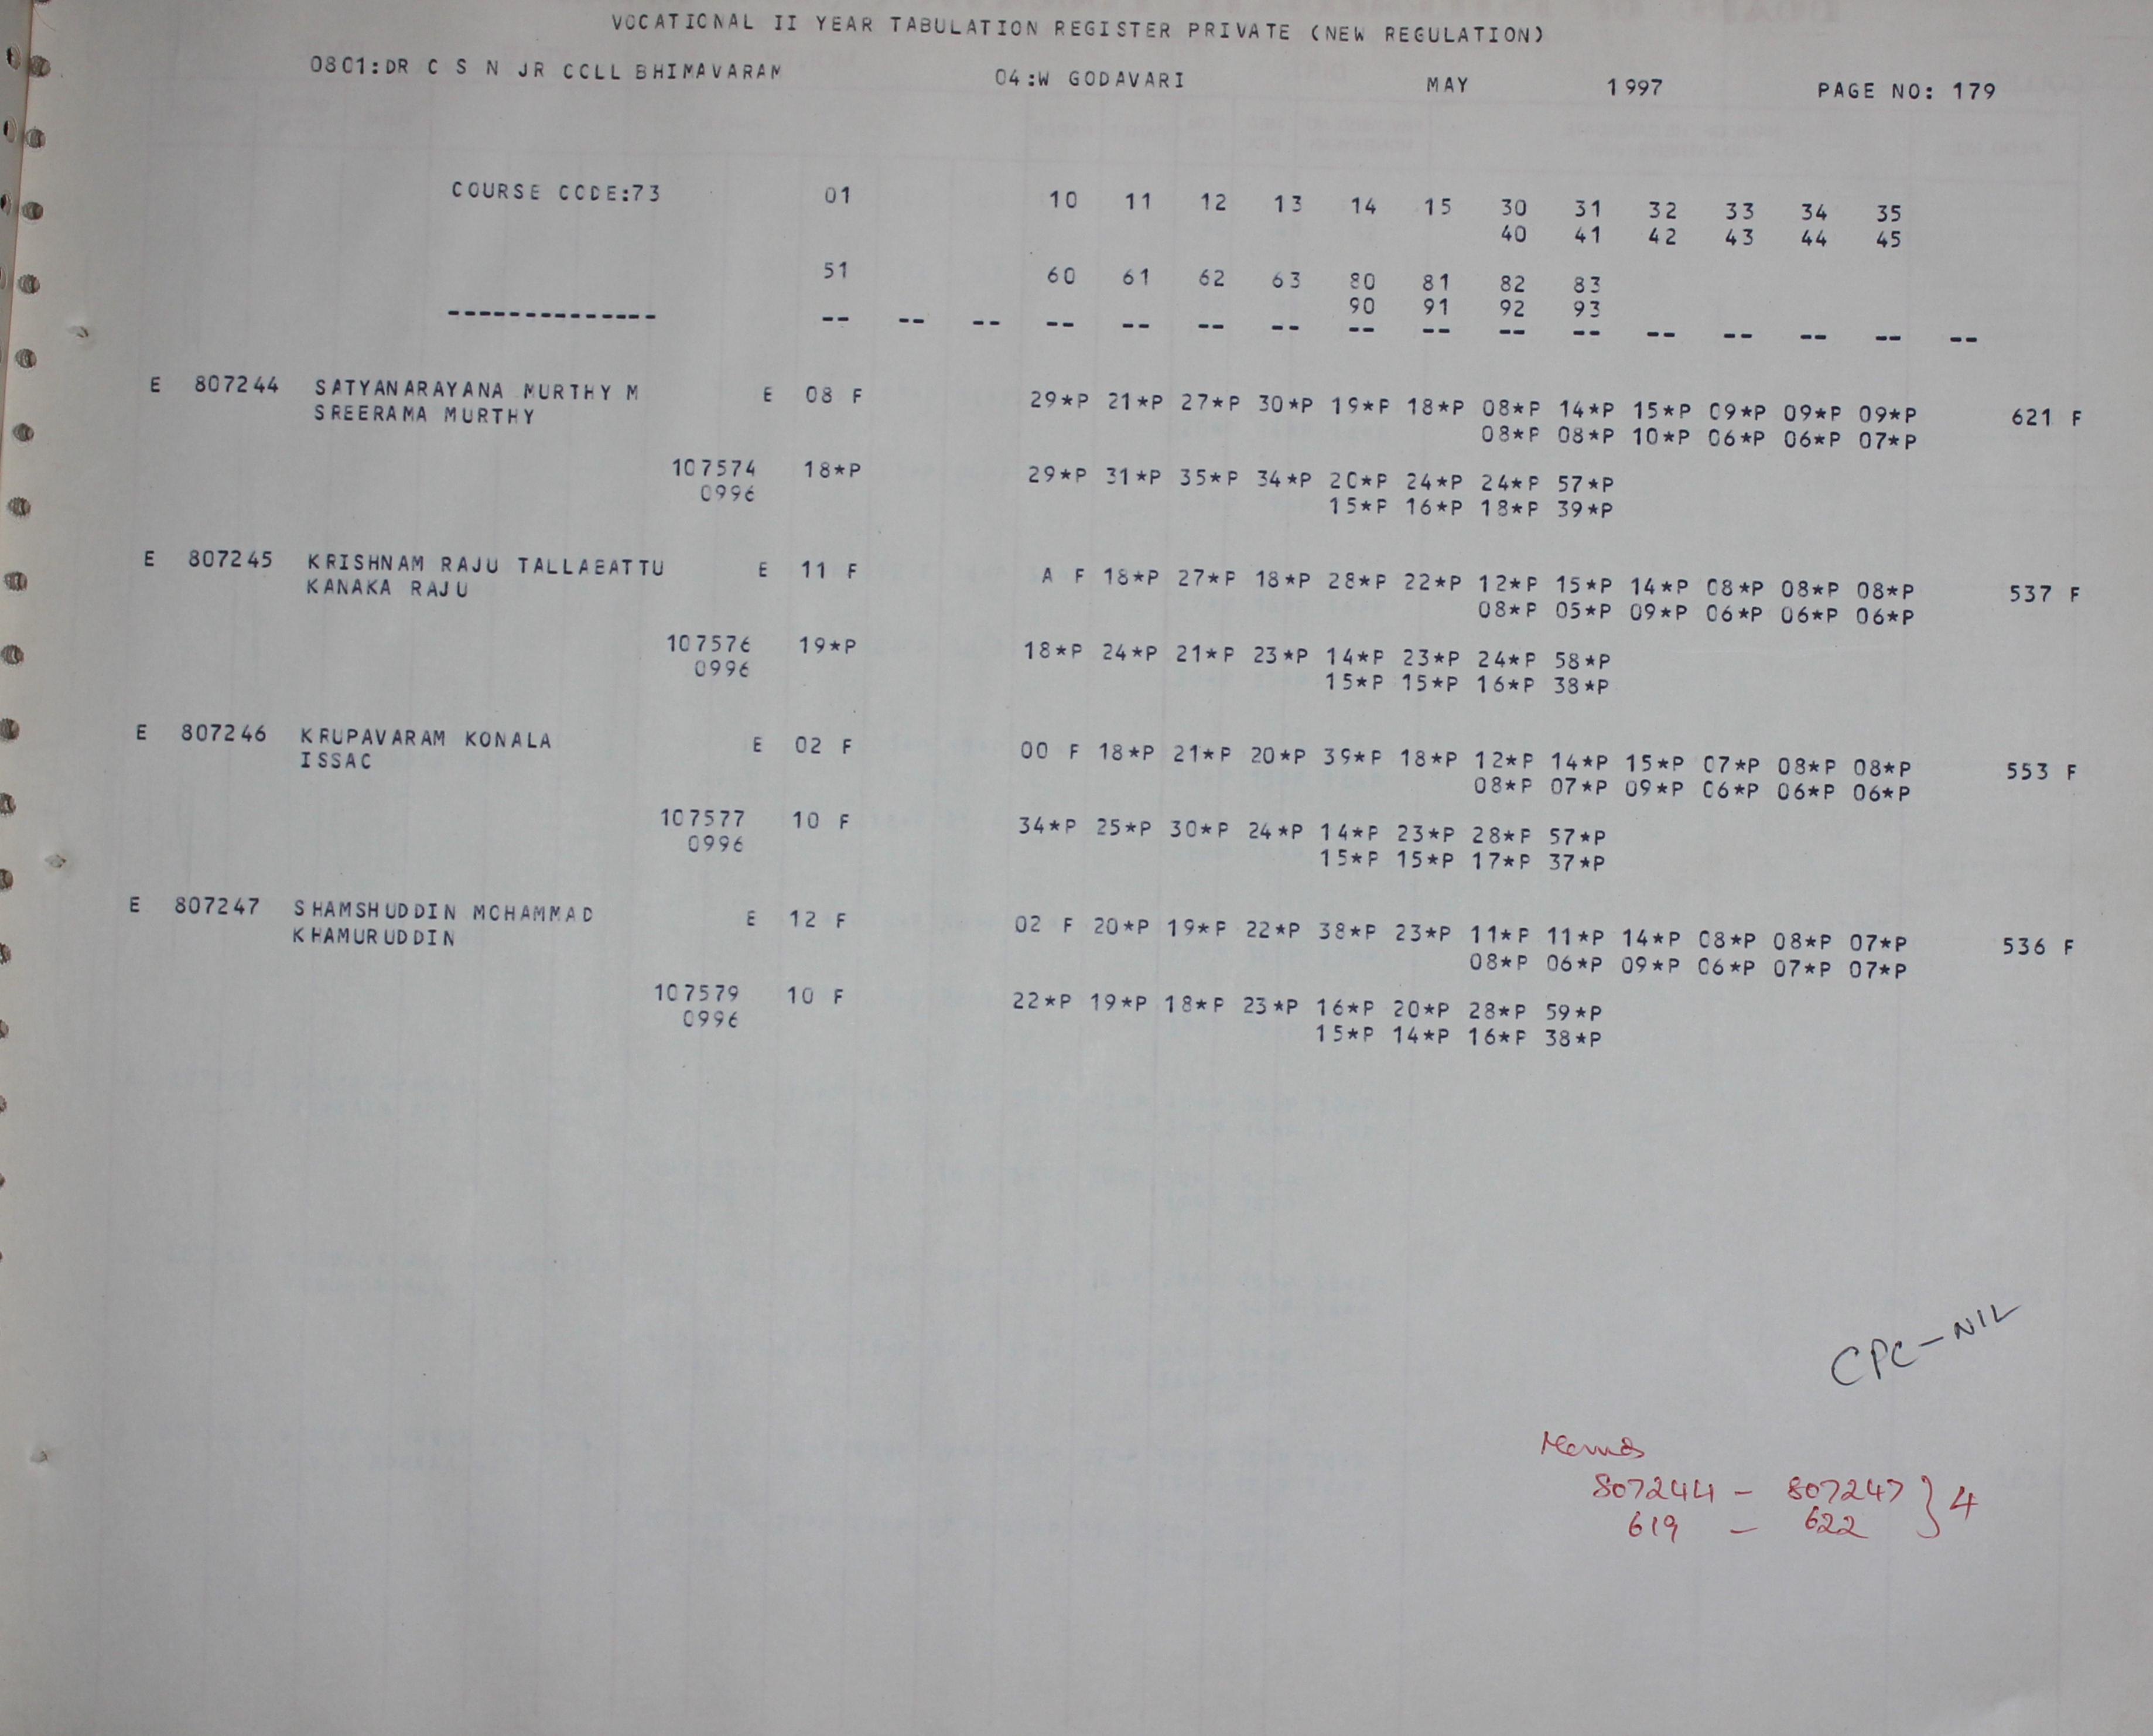 VOCATIONAL II YEAR TABULATION REGISTER PRIVATE (NEW REGULATION)
0801:DR C S N JR COLL BHIMAVARAM 04:W GODAVARI MAY 1997 PAGE NO: 179
COURSE CODE:73 01 10 11 12 13 14 15 30 31 32 33 34 35
40 41 42 43 44 45
51 60 61 62 63 80 81 82 83
90 91 92 93
-------------- -- -- -- -- -- -- -- -- -- -- -- -- -- -- -- --
E 807244 SATYANARAYANA MURTHY M E 08 F 29*P 21*P 27*P 30*P 19*P 18*P 08*P 14*P 15*P 09*P 09*P 09*P 621 F
SREERAMA MURTHY 08*P 08*P 10*P 06*P 06*P 07*P
107574 18*P 29*P 31*P 35*P 34*P 20*P 24*P 24*P 57*P
0996 15*P 16*P 18*P 39*P
E 807245 KRISHNAM RAJU TALLABATTU E 11 F A F 18*P 27*P 18*P 28*P 22*P 12*P 15*P 14*P 08*P 08*P 08*P 537 F
KANAKA RAJU 08*P 05*P 09*P 06*P 06*P 06*P
107576 19*P 18*P 24*P 21*P 23*P 14*P 23*P 24*P 58*P
0996 15*P 15*P 16*P 38*P
E 807246 KRUPAVARAM KONALA E 02 F 00 F 18*P 21*P 20*P 39*P 18*P 12*P 14*P 15*P 07*P 08*P 08*P 553 F
ISSAC 08*P 07*P 09*P 06*P 06*P 06*P
107577 10 F 34*P 25*P 30*P 24*P 14*P 23*P 28*P 57*P
0996 15*P 15*P 17*P 37*P
E 807247 SHAMSHUDDIN MOHAMMAD E 12 F 02 F 20*P 19*P 22*P 38*P 23*P 11*P 11*P 14*P 08*P 08*P 07*P 536 F
KHAMURUDDIN 08*P 06*P 09*P 06*P 07*P 07*P
107579 10 F 22*P 19*P 18*P 23*P 16*P 20*P 28*P 59*P
0996 15*P 14*P 16*P 38*P
CPC-NIL
Memos
807244 - 807247 } 4
619 - 622